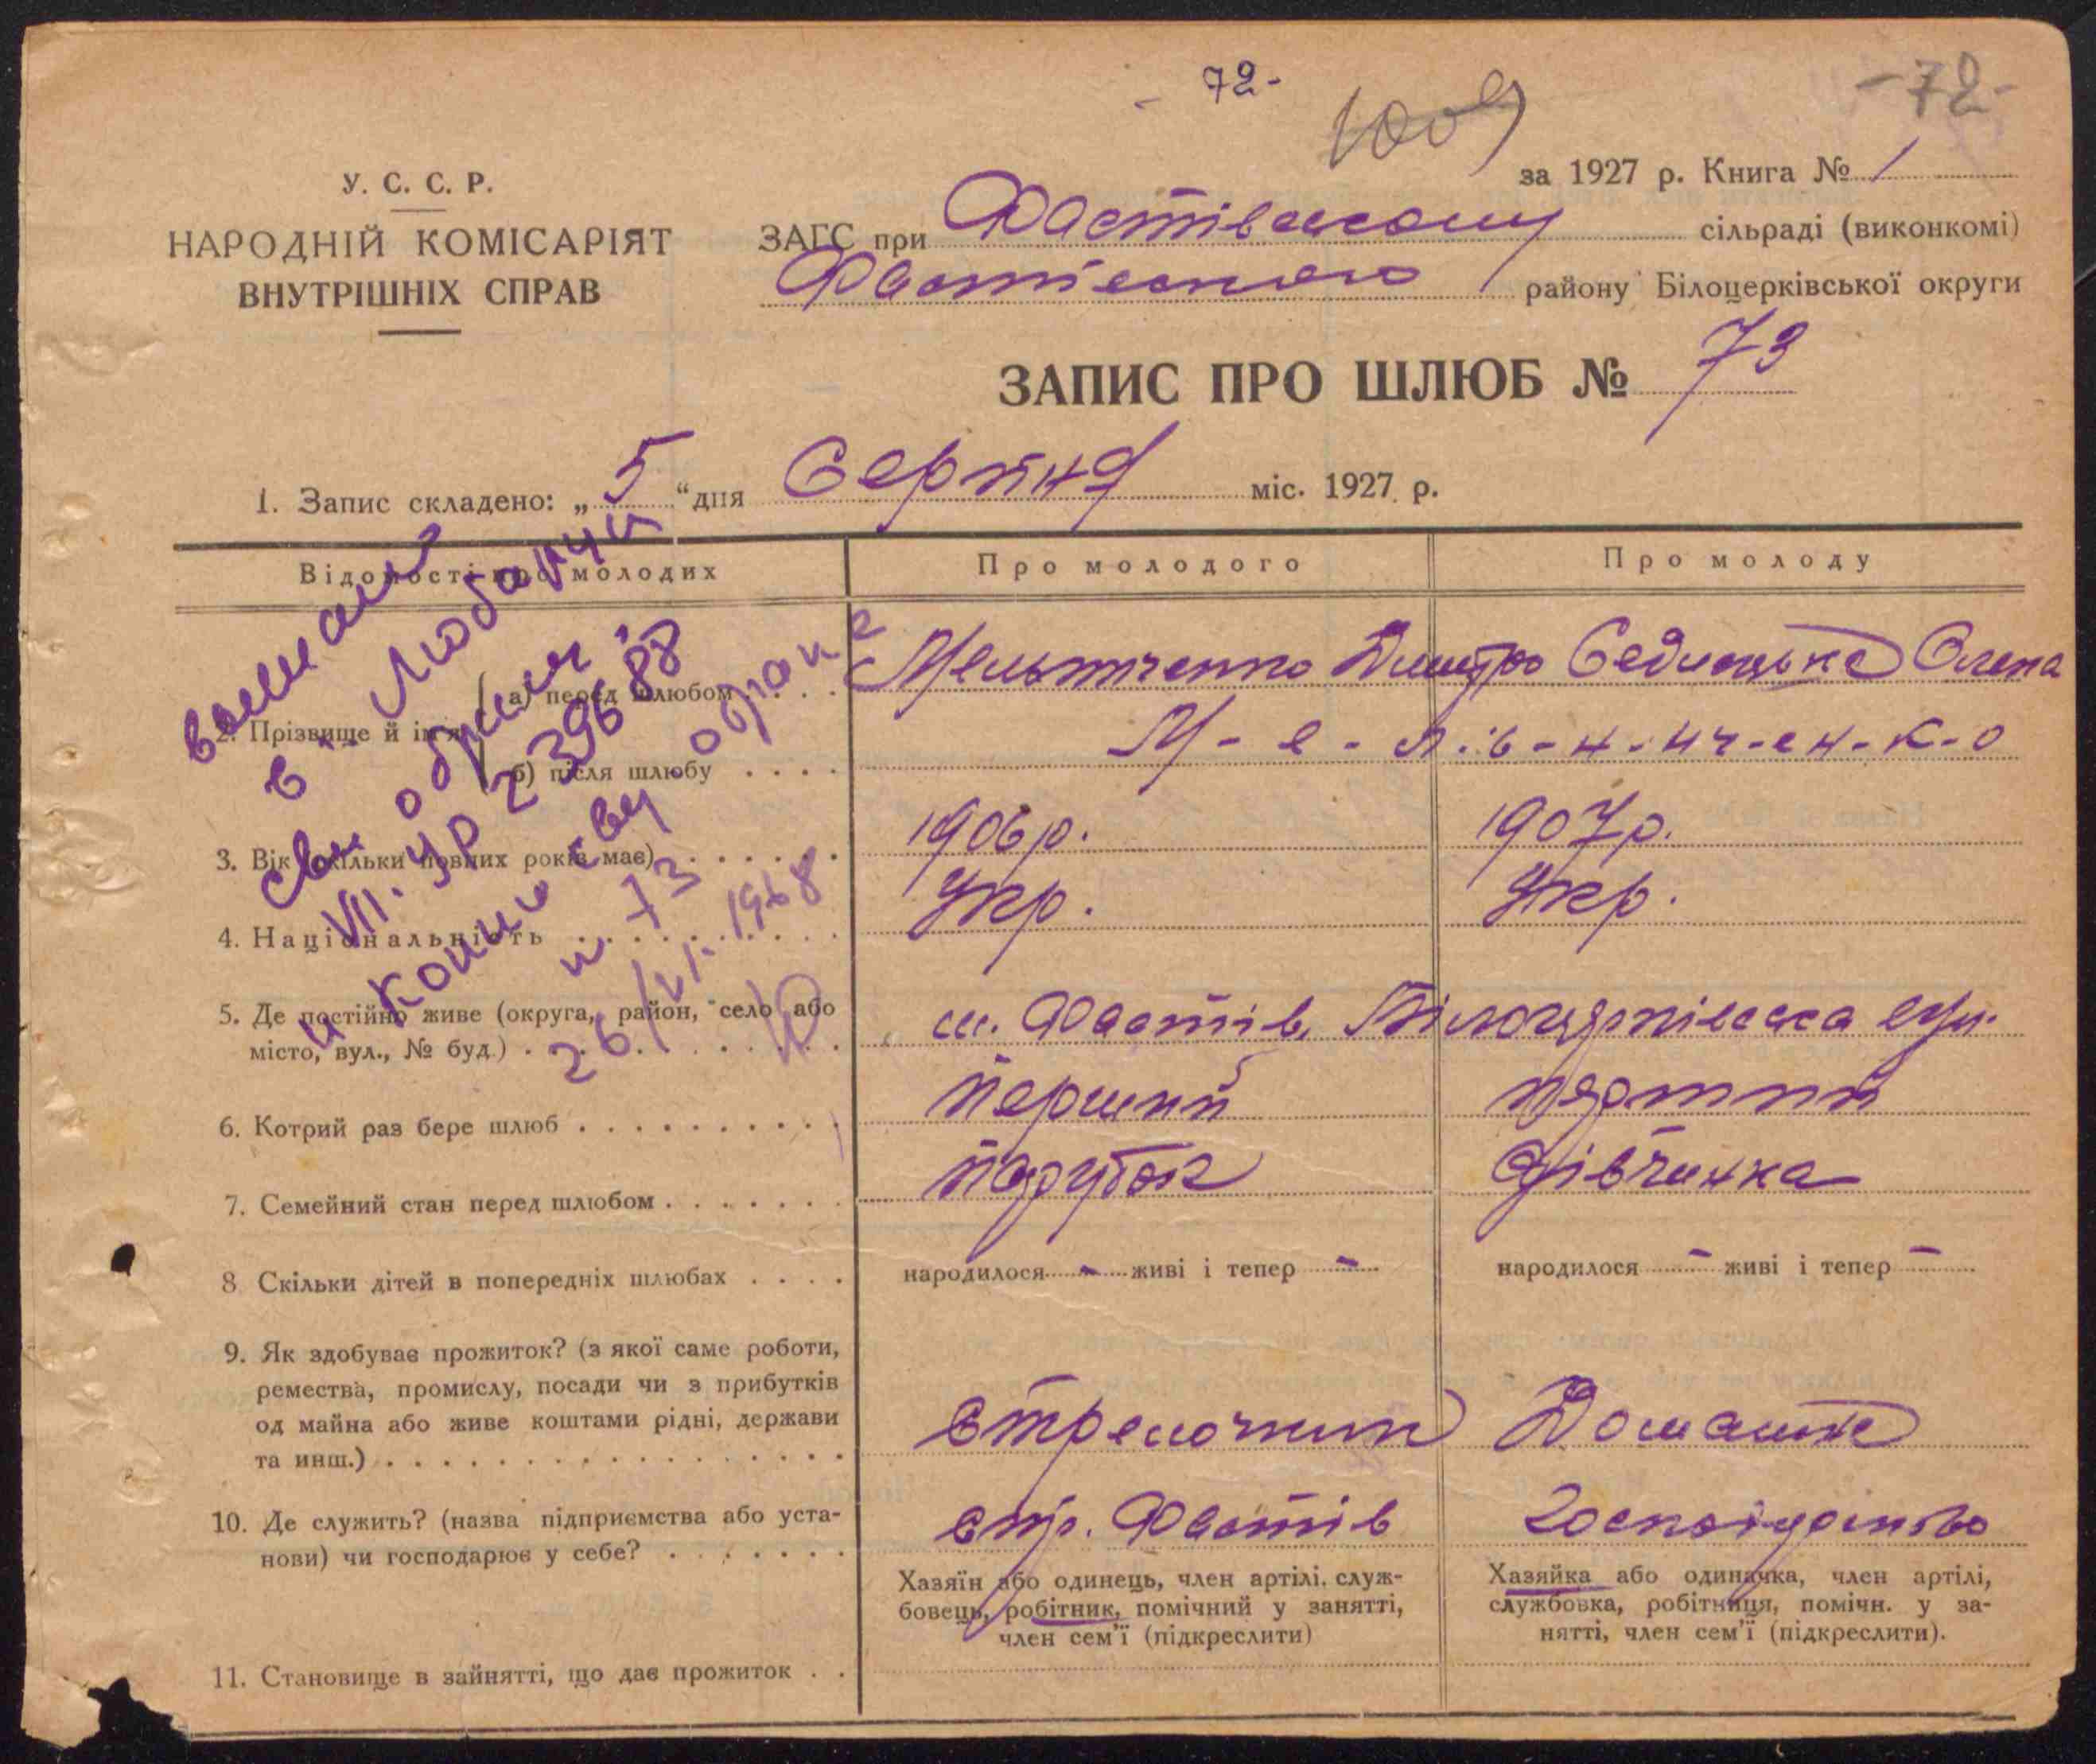 - 72 -
1009
- 72 -
У. С. С. Р.
НАРОДНІЙ КОМІСАРІЯТ
ВНУТРІШНІХ СПРАВ
за 1927 р. Книга № 1
ЗАГС при Фастівському сільраді (виконкомі)
Фастівського району Білоцерківської округи
ЗАПИС ПРО ШЛЮБ № 73
1. Запис складено: „5“ дня Серпня міс. 1927 р.
Відомості про молодих
Про молодого
Про молоду
2. Прізвище й ім'я
а) перед шлюбом . . . .
Мельниченко Дмитро
Седлецька Олена
б) після шлюбу . . . .
М-е-л-ь-н-ич-ен-к-о
3. Вік (скільки повних років має) . . . . . .
1906 р.
1907 р.
4. Національність . . . . . . . .
Укр.
Укр.
5. Де постійно живе (округа, район, село або
місто, вул., № буд.) . . . . . . . .
м. Фастів, Білоцерківська окр.
6. Котрий раз бере шлюб . . . . . . . . . .
перший
перший
7. Семейний стан перед шлюбом . . . . . . .
парубок
дівчинка
8 Скільки дітей в попередніх шлюбах . . . .
народилося - живі і тепер -
народилося - живі і тепер -
9. Як здобуває прожиток? (з якої саме роботи,
ремества, промислу, посади чи з прибутків
од майна або живе коштами рідні, держави
та инш.) . . . . . . . . . . . . . . . . .
Стрелочник
Домашнє
10. Де служить? (назва підприємства або уста-
нови) чи господарює у себе? . . . . . . .
ст. Фастів
господарство
Хазяїн або одинець, член артілі. служ-
бовець, робітник, помічний у занятті,
член сем'ї (підкреслити)
Хазяйка або одиначка, член артілі,
службовка, робітниця, помічн. у за-
нятті, член сем'ї (підкреслити).
11. Становище в зайнятті, що дає прожиток . .
в
св. о браке
VII. УР 2396 88
и копии св у о брак
н 73
26/VI. 1968